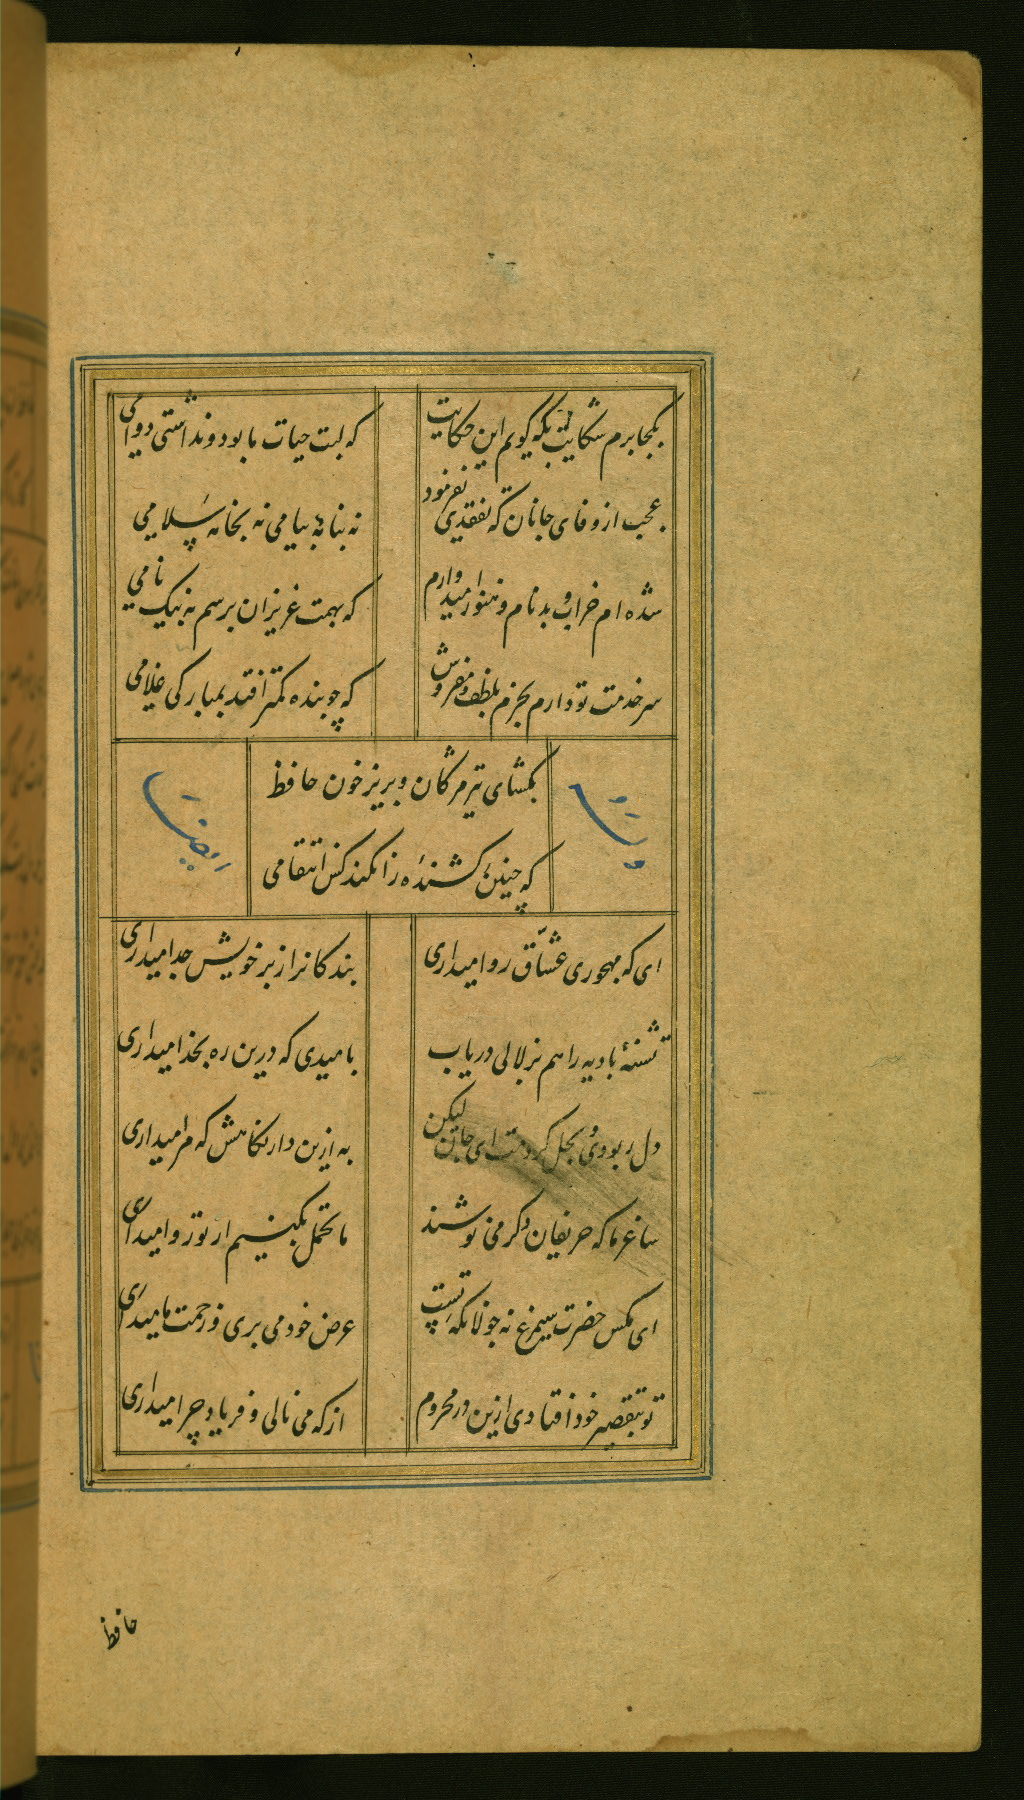 بکجا برم شکایت بکه گویم این حکایت
که لبت حیات ما بود و نداشتی دوامی
عجب از وفای جانان که تفقدی نفرمود
نه بنامه پیامی نه بخامه سلامی
شده ام خراب و بدنام و هنوز امیدوارم
که بهمت عزیزان برسم به نیک نامی
سر خدمت تو دارم بخرم بلطف و مفروش
که چو بنده کمتر افتد بمبارکی غلامی
بگشای تیر مژگان و بریز خون حافظ
که چنین کشندهٔ را نکند کس انتقامی
وله ایضا
ای که مهجوری عشاق روا میداری
بندگانرا ز بر خویش جدا میداری
تشنهٔ بادیه را هم بزلالی دریاب
بامیدی که درین ره بخدا میداری
دل ربودی و بحل کردمت ای جان لیکن
به ازین دار نگاهش که مرا میداری
ساغر ما که حریفان دگر می نوشند
ما تحمل بکنیم ار تو روا میداری
ای مگس حضرت سیمرغ نه جولانگه تست
عرض خود می بری و زحمت ما میداری
تو بتقصیر خود افتادی ازین در محروم
از که می نالی و فریاد چرا میداری
حافظ